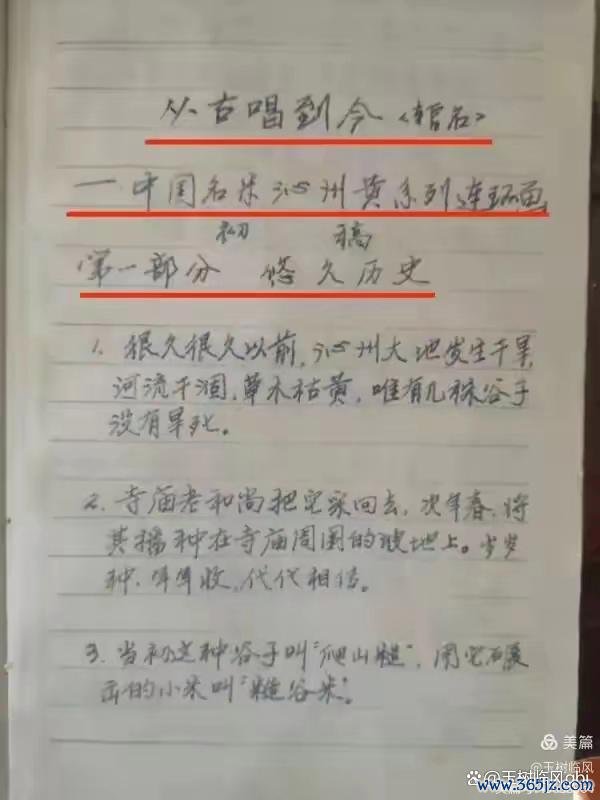 从古唱到今《暂名》
一中国名米沁州黄系列连环画
初 稿
第一部分 悠久历史
1. 很久很久以前,沁州大地发生干旱,
河流干涸,草木枯黄,唯有几株谷子
没有旱死。
2. 寺庙老和尚把它采回去,次年春,将
其播种在寺庙周围的坡地上。岁岁
种,年年收,代代相传。
3. 当初这种谷子叫"爬山糙",用它碾
出的小米叫"糙谷米"。
美篇
@玉树临风
www.365jz.com